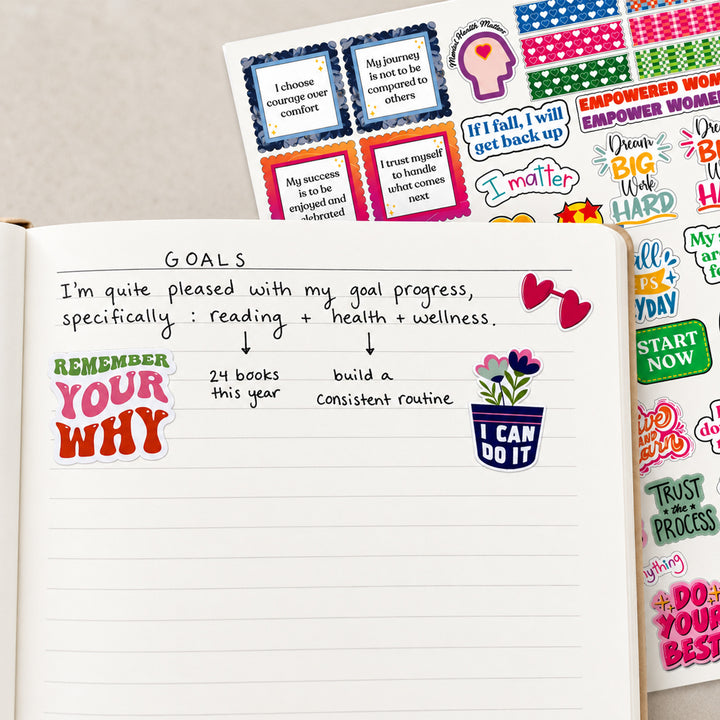 GOALS
I'm quite pleased with my goal progress,
specifically : reading + health + wellness.
24 books
this year
build a
consistent routine
REMEMBER
YOUR
WHY
I CAN
DO IT
I choose
courage over
comfort
My journey
is not to be
compared to
others
My success
is to be
enjoyed and
celebrated
I trust myself
to handle
what comes
next
Mental Health Matters
If I fall, I will
get back up
I matter
EMPOWERED
EMPOWER WOMEN
Dream
BIG
Work
HARD
Dream
BIG
HARD
START
NOW
TRUST
the
PROCESS
DO
YOUR
BEST